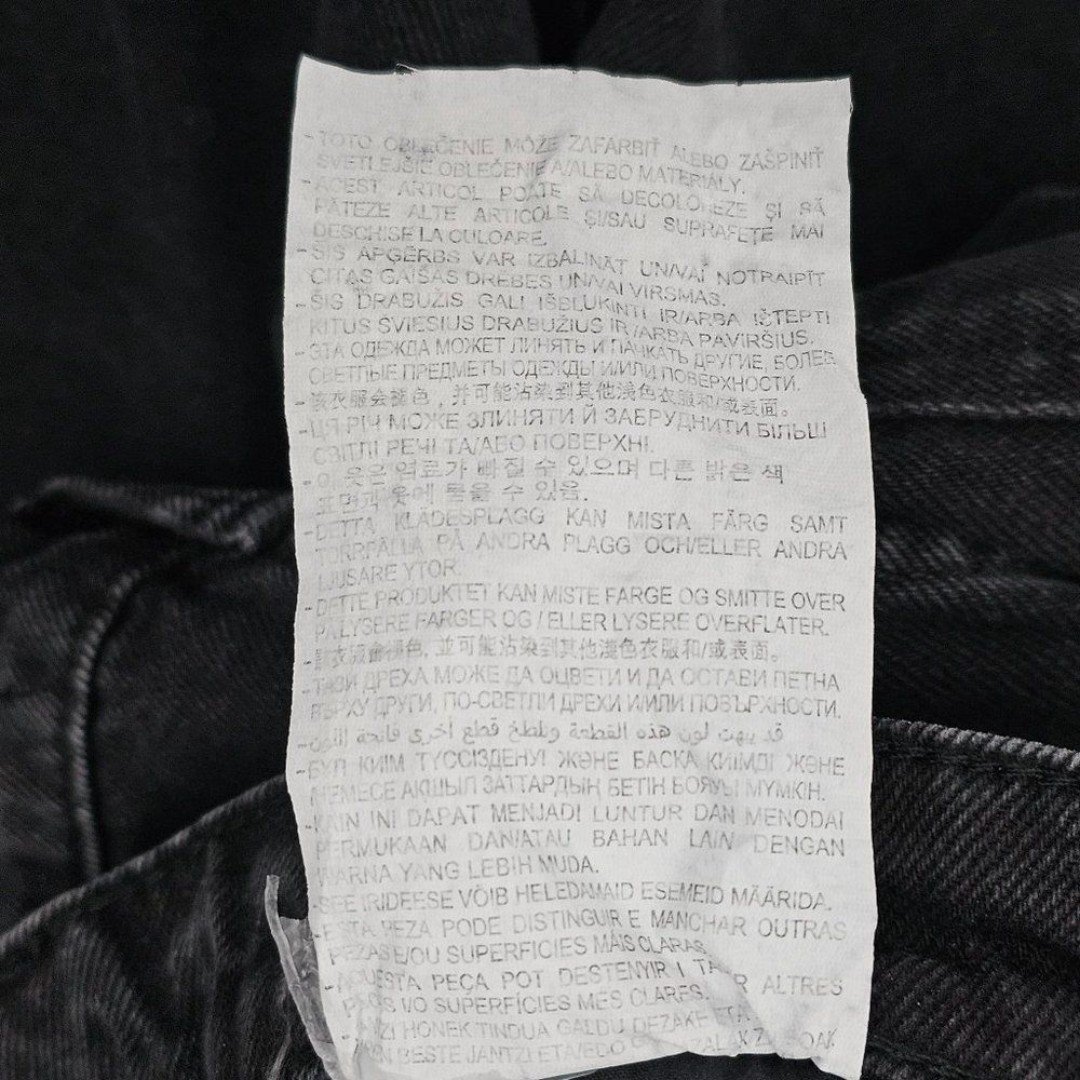 - TOTO OBLEČENIE MÔŽE ZAFARBIŤ ALEBO ZAŠPINIŤ
SVETLEJŠIE OBLEČENIE A/ALEBO MATERIÁLY.
- ACEST ARTICOL POATE SĂ DECOLOREZE ŞI SĂ
PĂTEZE ALTE ARTICOLE ŞI/SAU SUPRAFEŢE MAI
DESCHISE LA CULOARE.
- ŠIS APĢĒRBS VAR IZBALINĀT UN/VAI NOTRAIPĪT
CITAS GAIŠAS DRĒBES UN/VAI VIRSMAS.
- ŠIS DRABUŽIS GALI IŠBLUKINTI IR/ARBA IŠTEPTI
KITUS ŠVIESIUS DRABUŽIUS IR /ARBA PAVIRŠIUS.
- ЭТА ОДЕЖДА МОЖЕТ ЛИНЯТЬ И ПАЧКАТЬ ДРУГИЕ, БОЛЕЕ
СВЕТЛЫЕ ПРЕДМЕТЫ ОДЕЖДЫ И/ИЛИ ПОВЕРХНОСТИ.
- 该衣服会褪色，并可能沾染到其他浅色衣服和/或表面。
- ЦЯ РІЧ МОЖЕ ЗЛИНЯТИ Й ЗАБРУДНИТИ БІЛЬШ
СВІТЛІ РЕЧІ ТА/АБО ПОВЕРХНІ.
- 이 옷은 염료가 빠질 수 있으며 다른 밝은 색
표면과 옷에 물들 수 있음.
- DETTA KLÄDESPLAGG KAN MISTA FÄRG SAMT
TORRFÄLLA PÅ ANDRA PLAGG OCH/ELLER ANDRA
LJUSARE YTOR.
- DETTE PRODUKTET KAN MISTE FARGE OG SMITTE OVER
PÅ LYSERE FARGER OG / ELLER LYSERE OVERFLATER.
- 該衣服會褪色, 並可能沾染到其他淺色衣服和/或表面。
- ТАЗИ ДРЕХА МОЖЕ ДА ЦВЕТИ И ДА ОСТАВИ ПЕТНА
ВЪРХУ ДРУГИ, ПО-СВЕТЛИ ДРЕХИ И/ИЛИ ПОВЪРХНОСТИ.
- قد يبهت لون هذه القطعة ويلطخ قطع اخرى فاتحة اللون
- БҰЛ КИІМ ТҮССІЗДЕНУІ ЖӘНЕ БАСҚА КИІМДІ ЖӘНЕ
НЕМЕСЕ АҚШЫЛ ЗАТТАРДЫҢ БЕТІН БОЯУЫ МҮМКІН.
- KAIN INI DAPAT MENJADI LUNTUR DAN MENODAI
PERMUKAAN DAN/ATAU BAHAN LAIN DENGAN
WARNA YANG LEBIH MUDA.
- SEE RIIDEESE VÕIB HELEDAMAID ESEMEID MÄÄRIDA.
- ESTA PEZA PODE DISTINGUIR E MANCHAR OUTRAS
PEZAS E/OU SUPERFICIES MÁIS CLARAS.
- AQUESTA PEÇA POT DESTENYIR I ALTRES
I/O SUPERFÍCIES MÉS CLARES.
- JANTZI HONEK TINDUA GALDU DEZAKE ETA
BESTE JANTZI ETA/EDO